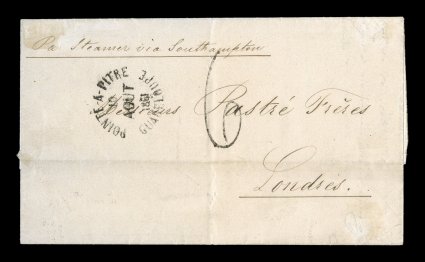 Par Steamer via Southampton
POINTE-A-PITRE
AOUT
GUADELOUPE
Messieurs Pastré Frères
6
Londres.